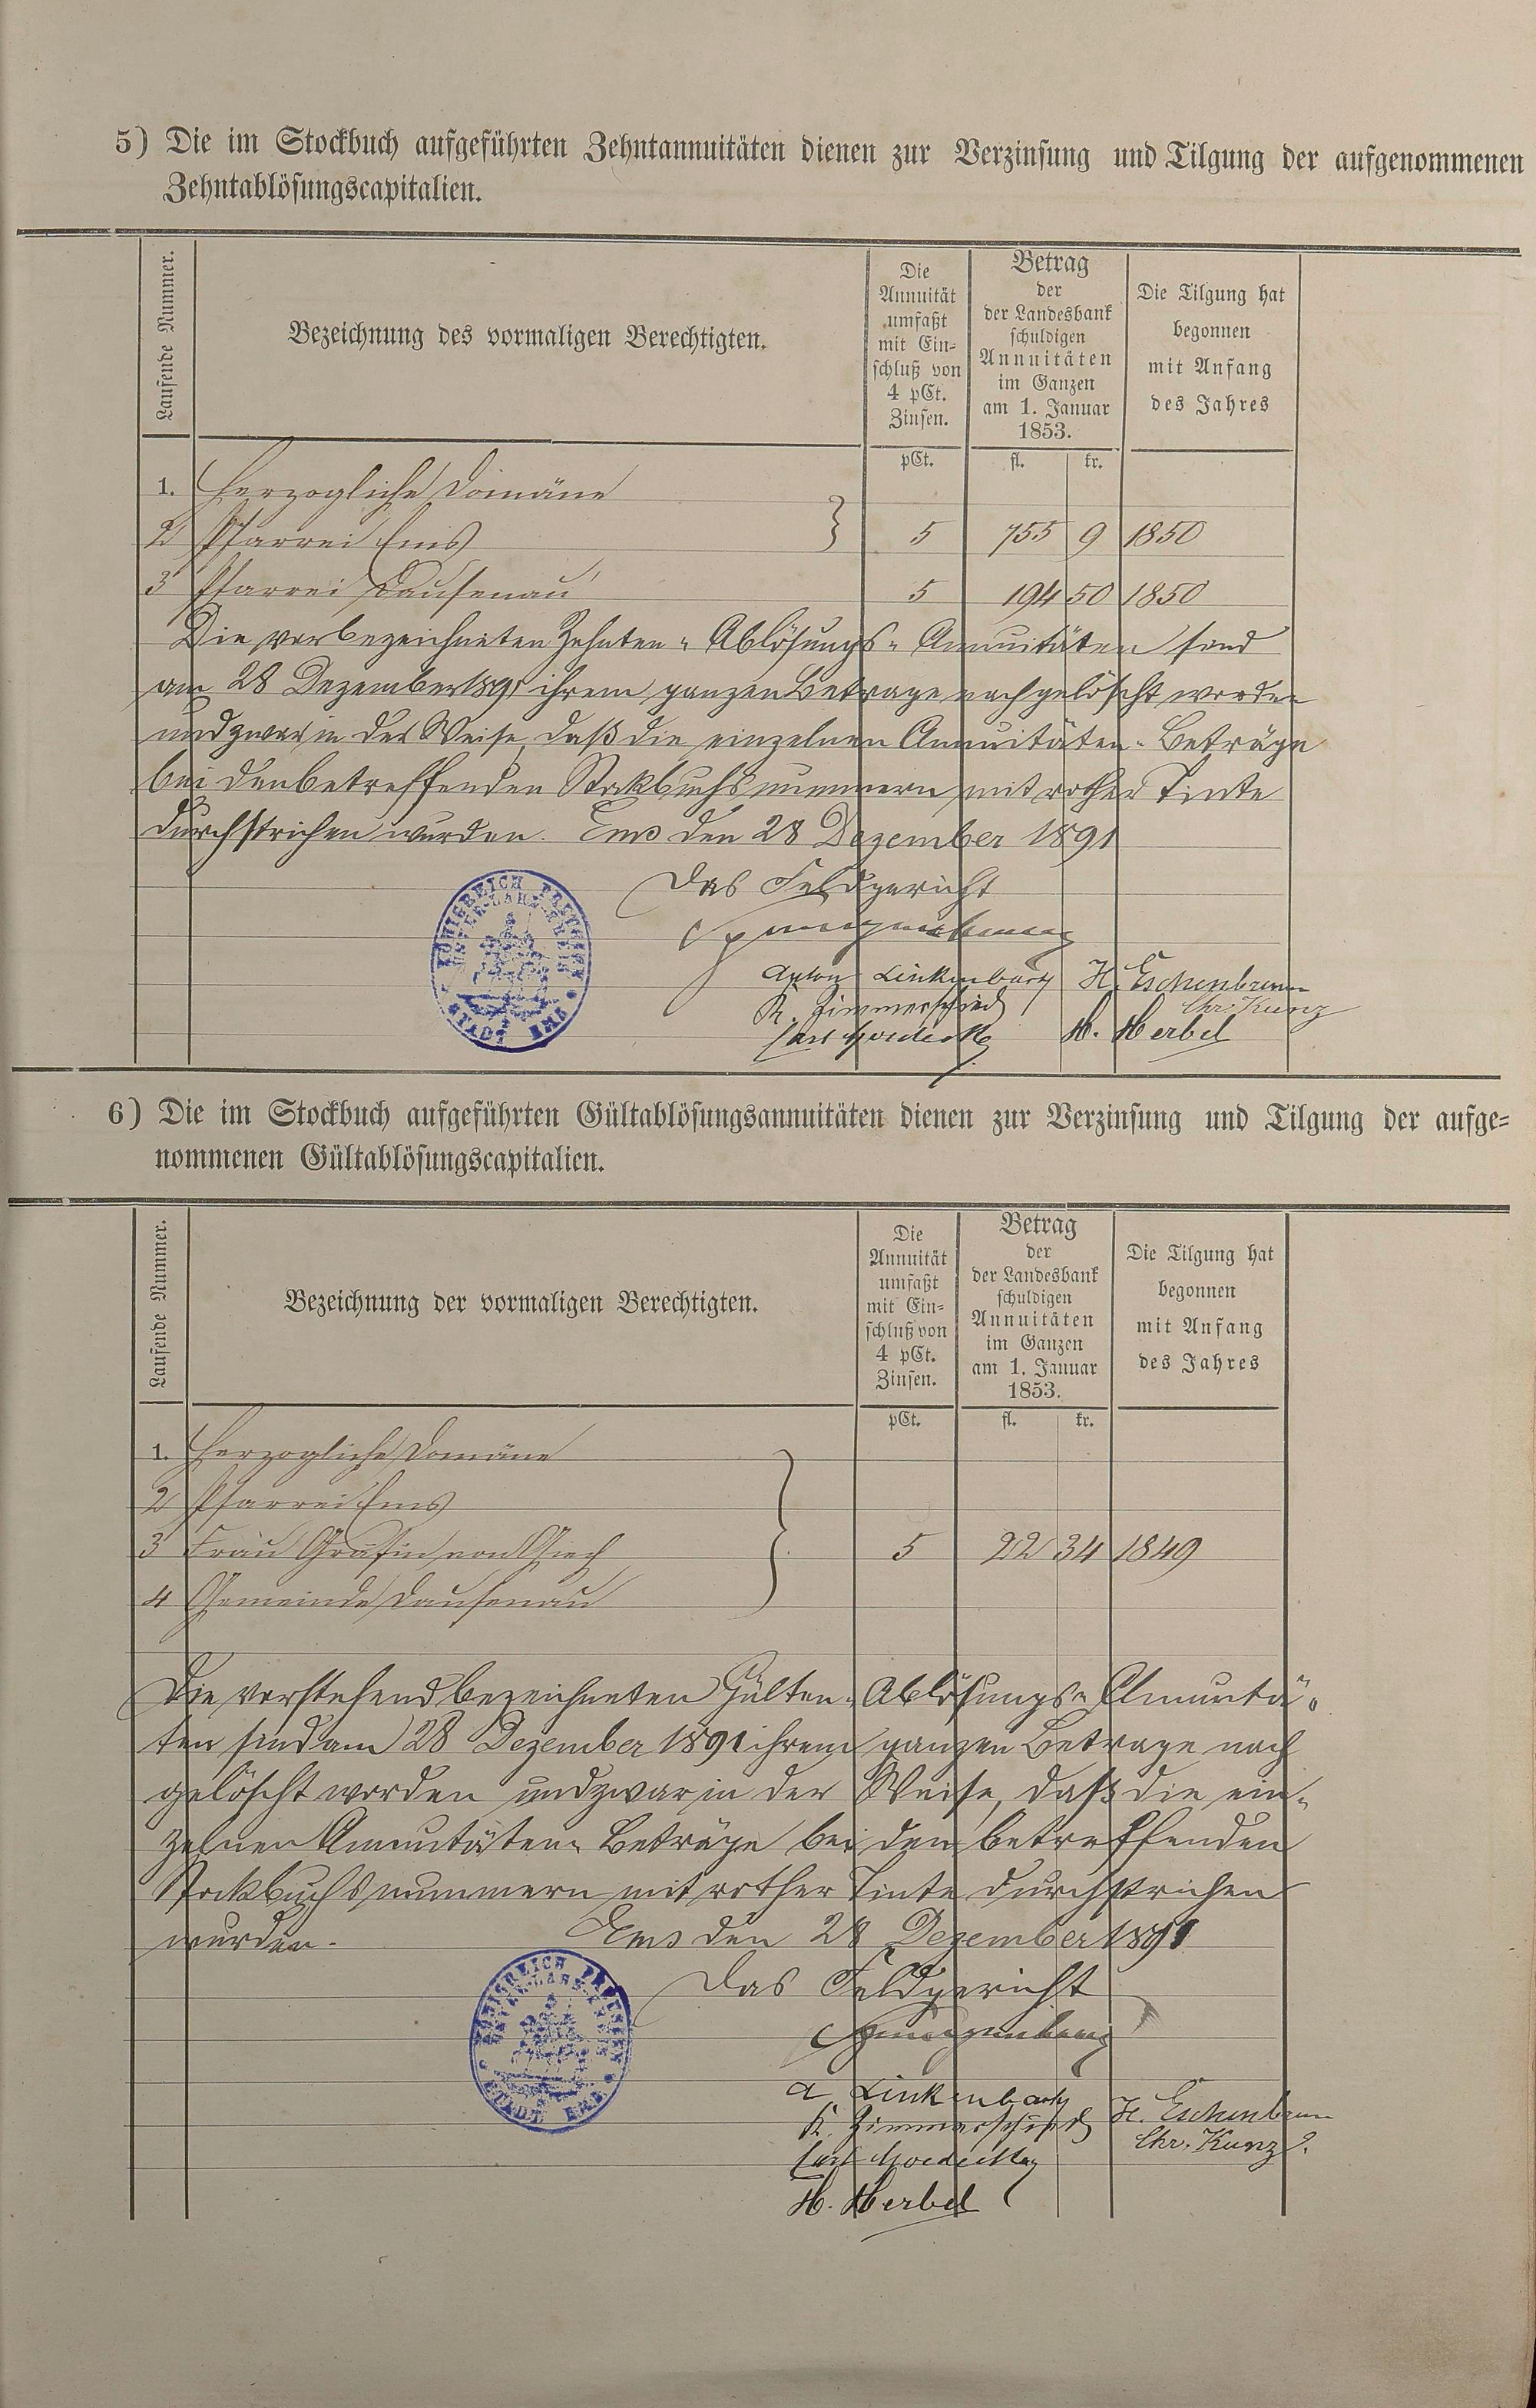 5) Die im Stockbuch aufgeführten Zehntannuitäten dienen zur Verzinsung und Tilgung der aufgenommenen
Zehntablösungscapitalien.
Laufende Nummer.
Bezeichnung des vormaligen Berechtigten.
Die
Annuität
umfaßt
mit Ein-
schluß von
4 pCt.
Zinsen.
Betrag
der
der Landesbank
schuldigen
Annuitäten
im Ganzen
am 1. Januar
1853.
Die Tilgung hat
begonnen
mit Anfang
des Jahres
pCt. fl. kr.
1. Herzogliche Domäne
2 Pfarrei Ems 5 755 9 1850
3 Pfarrei Dausenau 5 194 50 1850
Die vorbezeichneten Zehnten-Ablösungs-Annuitäten sind
am 28 Dezember 1891 ihrem ganzen Betrage nach gelöscht worden
und zwar in der Weise, daß die einzelnen Annuitäten-Beträge
bei den betreffenden Stockbuchsnummern mit rother Tinte
durchstrichen wurden. Ems den 28 Dezember 1891
Das Feldgericht
Anton Linkenbach H. Eschenbrenner
K. Zimmerschied Chr. Kunz
Carl H. Herbel
KÖNIGREICH PREUSSEN
STADT EMS
6) Die im Stockbuch aufgeführten Gültablösungsannuitäten dienen zur Verzinsung und Tilgung der aufge-
nommenen Gültablösungscapitalien.
Laufende Nummer.
Bezeichnung der vormaligen Berechtigten.
Die
Annuität
umfaßt
mit Ein-
schluß von
4 pCt.
Zinsen.
Betrag
der
der Landesbank
schuldigen
Annuitäten
im Ganzen
am 1. Januar
1853.
Die Tilgung hat
begonnen
mit Anfang
des Jahres
pCt. fl. kr.
1. Herzogliche Domäne
2 Pfarrei Ems
3 Frau Gräfin von Giech 5 22 34 1849
4 Gemeinde Dausenau
Die vorstehend bezeichneten Gülten-Ablösungs-Annuitä-
ten sind am 28 Dezember 1891 ihrem ganzen Betrage nach
gelöscht worden und zwar in der Weise, daß die ein-
zelnen Annuitäten-Beträge bei den betreffenden
Stockbuchsnummern mit rother Tinte durchstrichen
wurden. Ems den 28 Dezember 1891
Das Feldgericht
A Linkenbach H. Eschenbrenner
K. Zimmerschied Chr. Kunz
Carl
H. Herbel
KÖNIGREICH PREUSSEN
STADT EMS